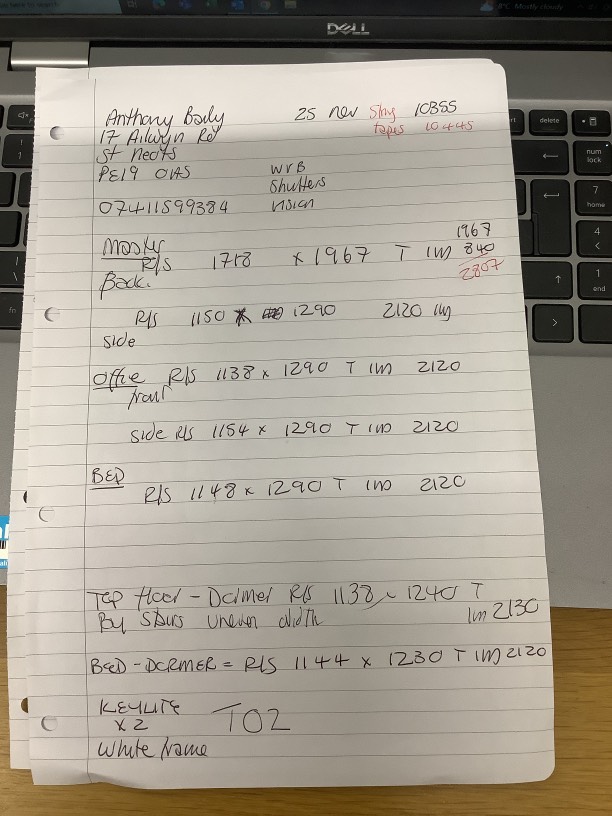 DELL
8°C Mostly cloudy
Anthony Baily 25 nov Slug 10355
tapes 10445
17 Ailwyn Rd
St Neots
PE19 0AS WVB
Shutters
07411599384 vision
Master 1967
R/S 1718 x 1967 T IM 840
Back. 2807
R/S 1150 x 1290 2120
side
Office R/S 1138 x 1290 T IM 2120
front
side R/S 1154 x 1290 T IM 2120
BED
R/S 1148 x 1290 T IM 2120
Top floor - Dormer R/S 1138 x 1240 T
By Stairs uneven width IM 2130
BED - DORMER = R/S 1144 x 1230 T IM 2120
KEYLITE
X 2 T02
White frame
delete
num
lock
7
home
4
1
end
fn